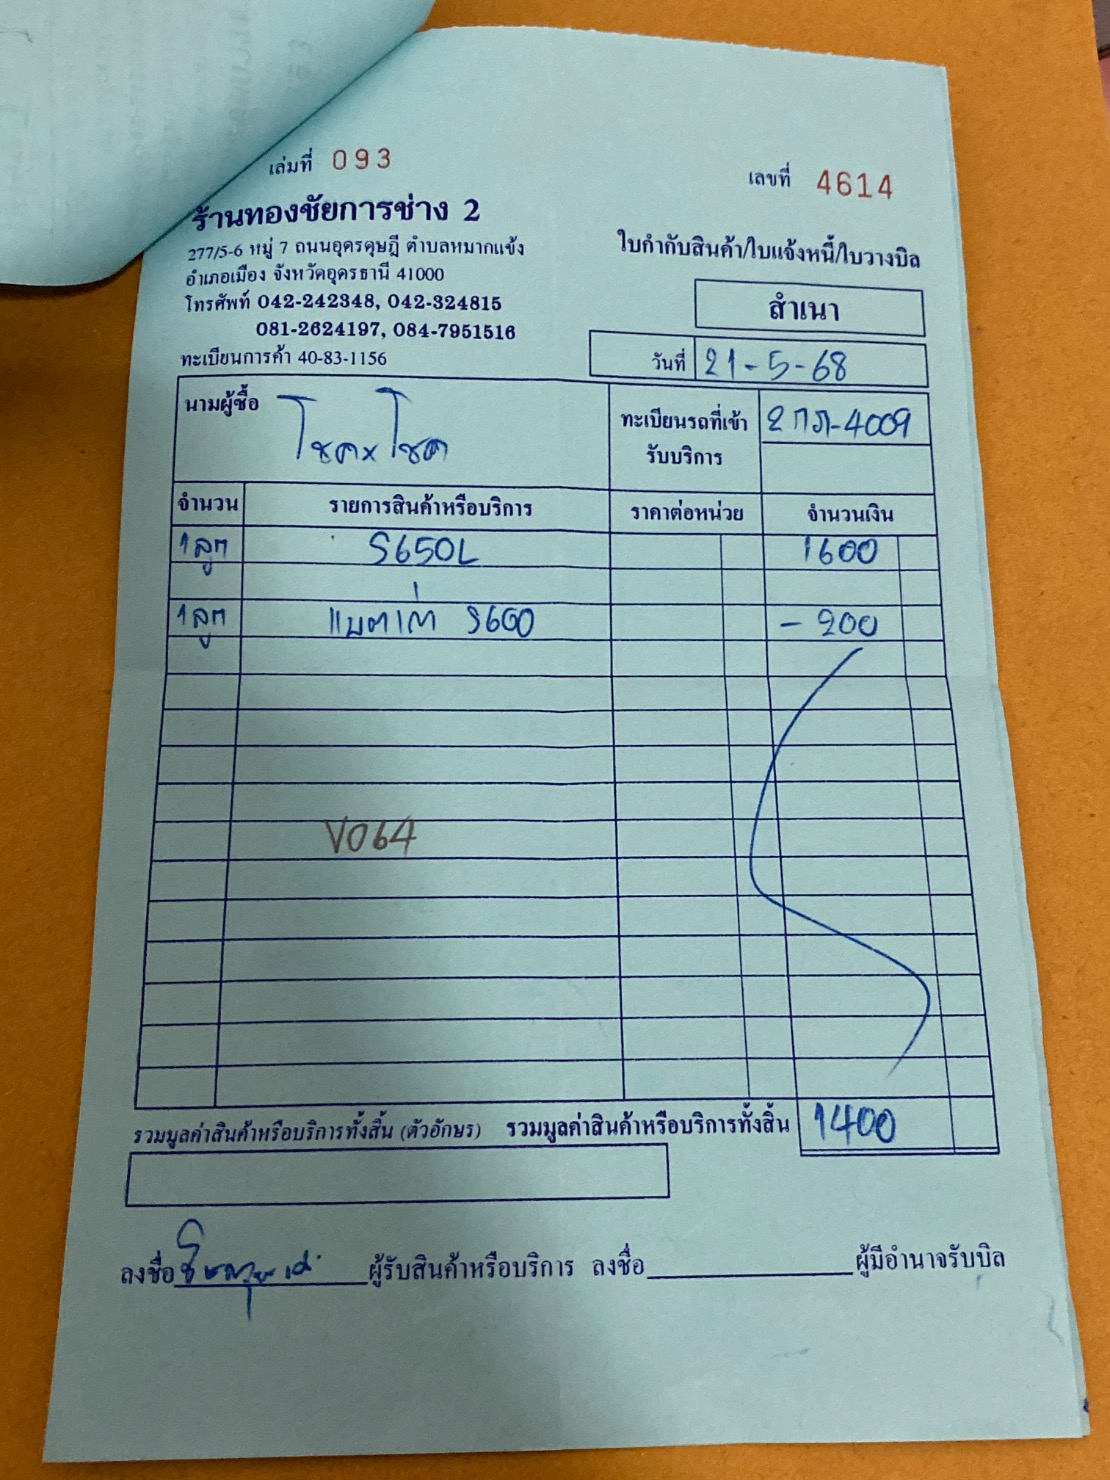 เล่มที่ 093
เลขที่ 4614
ร้านทองชัยการช่าง 2
277/5-6 หมู่ 7 ถนนอุดรดุษฎี ตำบลหมากแข้ง
อำเภอเมือง จังหวัดอุดรธานี 41000
โทรศัพท์ 042-242348, 042-324815
081-2624197, 084-7951516
ทะเบียนการค้า 40-83-1156
ใบกำกับสินค้า/ใบแจ้งหนี้/ใบวางบิล
สำเนา
วันที่ 21-5-68
นามผู้ซื้อ โชคxโชค
ทะเบียนรถที่เข้า
รับบริการ
2 กภ-4009
จำนวน รายการสินค้าหรือบริการ ราคาต่อหน่วย จำนวนเงิน
1 ลูก S650L 1600
1 ลูก แบตเก่า S600 - 200
V064
รวมมูลค่าสินค้าหรือบริการทั้งสิ้น (ตัวอักษร) รวมมูลค่าสินค้าหรือบริการทั้งสิ้น 1400
ลงชื่อ ผู้รับสินค้าหรือบริการ ลงชื่อ ผู้มีอำนาจรับบิล